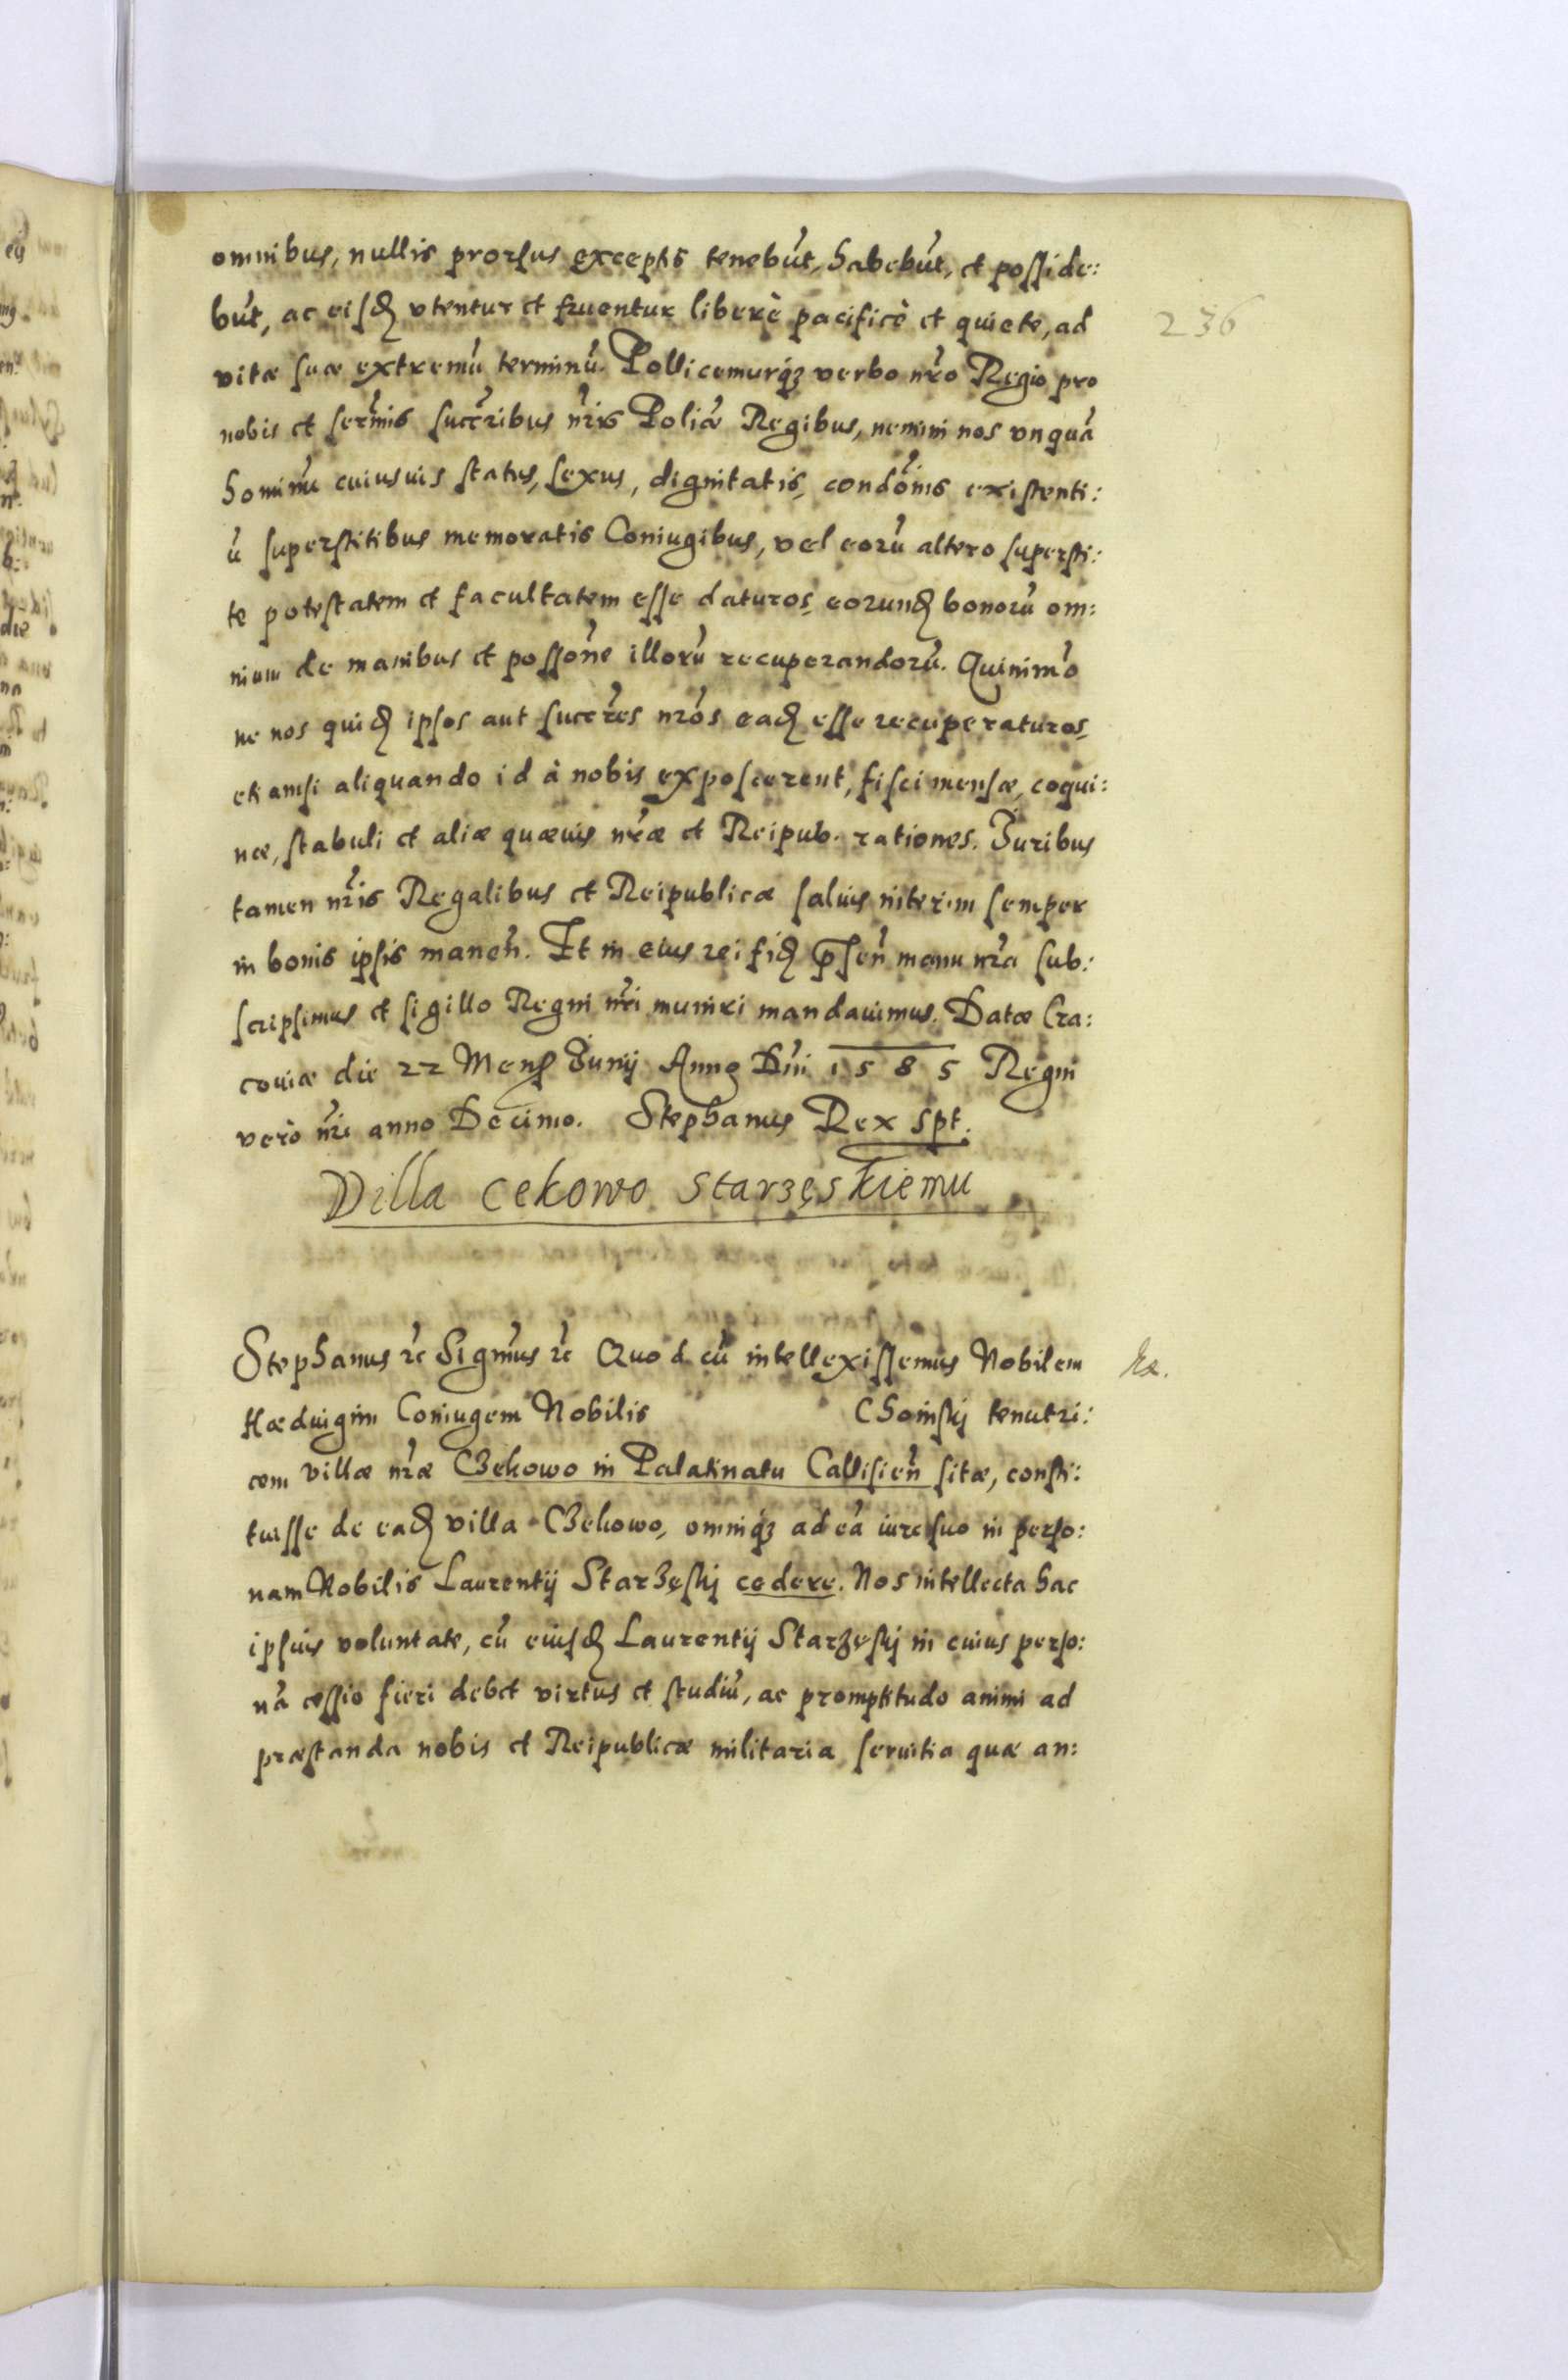 omnibus, nullis prorsus exceptis tenebūt, habebūt, et posside:
būt, ac eisdē vtentur et fruentur liberè pacificè et quiete, ad
236
vitæ suæ extremū terminū. Pollicemurq́ꝫ verbo nr̃o Regio pro
nobis et serm̃is succr̃ibus nr̃is Poliæ Regibus, nemini nos vnquā
hominū cuiusuis status, sexus, dignitatis, condõnis existenti:
ū superstitibus memoratis Coniugibus, vel eorū altero supersti:
te potestatem et facultatem esse daturos, eorundē bonorū om:
nium de manibus et possõne illorū recuperandorū. Quinimo
ne nos quidē ipsos aut succr̃es nr̃os eadē esse recuperaturos,
etiamsi aliquando id à nobis exposcerent, fisci mensæ, coqui:
næ, stabuli et aliæ quæuis nr̃æ et Reipub. rationes. Iuribus
tamen nr̃is Regalibus et Reipublicæ saluis interim semper
in bonis ipsis maneñ. Et in eius rei fidē p̄señ manu nr̃a sub:
scripsimus et sigillo Regni nr̃i muniri mandauimus. Datæ Cra:
couiæ die 22 Mens Iunij Anno Dn̄i 1585 Regni
verò nr̃i anno Decimo. Stephanus Rex spt.
Villa Cekowo Starzęskiemu
Stephanus ꝛc Sigm̃us ꝛc Quod cū intellexissemus Nobilem
Hæduigim Coniugem Nobilis Choinskj tenutri:
cem villæ nr̃æ Czekowo in Palatinatu Callisieñ sitæ, consti:
tuisse de eadē villa Czekowo, omniq́ꝫ ad eā iure suo in perso:
nam Nobilis Laurentij Starzęskj cedere. Nos intellecta hac
ipsius voluntate, cū eiusdē Laurentij Starzęskj in cuius perso:
nā cessio fieri debet virtus et studiū, ac promptitudo animi ad
præstanda nobis et Reipublicæ militaria seruitia quæ an: